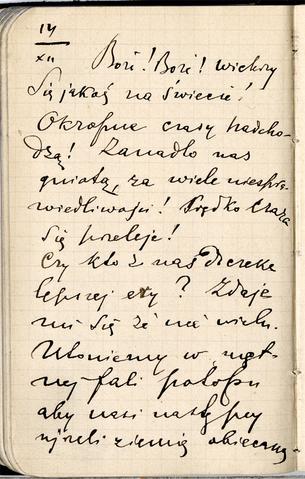 14
XII
Boże! Boże! wichrzy
się jakoś na świecie!
Okropne czasy nadcho-
dzą! Zanadto nas
gniotą, za wiele niespra-
wiedliwości! Prędko czara
się przeleje!
Czy kto z nas doczeka
lepszej ery? Zdaje
mi się że nie wielu.
Utoniemy w męt-
nej fali potopu
aby nasi następcy
ujrzeli ziemię obiecaną